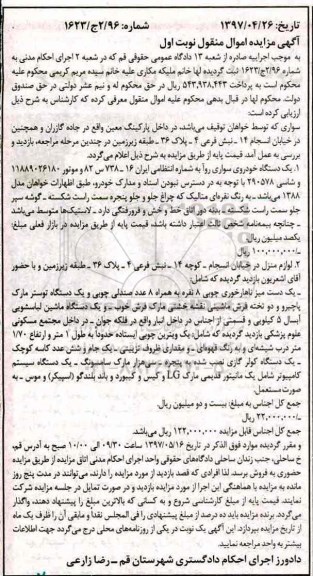 تاریخ: ۱۳۹۷/۰۴/۲۶ شماره: ۱۶۲۳/ج۲/۹۶
آگهی مزایده اموال منقول نوبت اول
به موجب اجراییه صادره از شعبه ۱۳ دادگاه عمومی حقوقی قم که در شعبه ۲ اجرای احکام مدنی به
شماره ۱۶۲۳/ج۲/۹۶ ثبت گردیده لها خانم ملیکه مکاری علیه خانم سیده مریم کریمی محکوم علیه
محکوم است به پرداخت ۵۴۳,۹۳۸,۴۴۳ ریال در حق محکوم له و نیم عشر دولتی در حق صندوق
دولت. محکوم لها در قبال بدهی محکوم علیه اموال منقول معرفی کرده که کارشناس به شرح ذیل
ارزیابی کرده است:
سواری که توسط خواهان توقیف می‌باشد، در داخل پارکینگ معین واقع در جاده گازران و همچنین
در خیابان انسجام ۱۴ ـ نبش فرعی ۴ ـ پلاک ۳۶ ـ طبقه زیرزمین در چندین مرحله مراجعه، بازدید و
بررسی به عمل آمد. قیمت پایه از طریق مزایده به شرح ذیل اعلام می‌گردد.
۱. یک دستگاه خودروی سواری روآ به شماره انتظامی ایران ۱۶ ـ ۷۳۸ س ۸۲ و موتور ۱۱۸۸۹۰۲۶۱۸۰
و شاسی ۲۹۰۵۷۸ با توجه به در دسترس نبودن اسناد و مدارک خودرو، طبق اظهارات خواهان مدل
۱۳۸۸ می‌باشد ـ به رنگ نقره‌ای متالیک که چراغ جلو و جلو پنجره سمت راست شکسته ـ گوشه سپر
جلو سمت راست شکسته ـ بدنه دور اتاق خط و خش و فرورفتگی دارد ـ لاستیک‌ها متوسط می‌باشد
ـ چنانچه بیمه‌نامه شخص ثالث اعتبار داشته باشد، قیمت پایه از طریق مزایده در بازار فعلی مبلغ:
یکصد میلیون ریال
ـ/۱۰۰,۰۰۰,۰۰۰ ریال
۲. لوازم منزل در خیابان انسجام ـ کوچه ۱۴ ـ نبش فرعی ۴ ـ پلاک ۳۶ ـ طبقه زیرزمین و با حضور
آقای اشعریون بازدید گردیده که شامل:
ـ یک دست میز ناهارخوری چوبی ۸ نفره به همراه ۸ عدد صندلی چوبی و یک دستگاه توستر مارک
پاچیرو و دو تخته فرش ماشینی نقشه خشتی مارک فرش خوب ـ و یک دستگاه ماشین لباسشویی
آبسال ۵ کیلویی و قسمتی از اجناس در داخل انبار واقع در فلکه جوان ـ در داخل مجتمع مسکونی
علوم پزشکی بازدید گردیده که شامل: یک ویترین چوبی ایستاده حدوداً به طول ۲ متر و ارتفاع ۱/۷۰
متر درب شیشه‌ای و به رنگ قهوه‌ای ـ و مقداری ظروف تزیینی ـ یک جام و شش عدد کاسه کوچک
ـ یک دستگاه کولر گازی نصب شده به پنجره ـ سی‌هزار مارک سامسونگ ـ یک دستگاه سیستم
کامپیوتر شامل یک مانیتور قدیمی مارک LG و کیس و کیبورد و باند بلندگو (اسپیکر) و موس ـ به
صورت مستعمل.
جمع کل اجناس به مبلغ: بیست و دو میلیون ریال
ـ/۲۲,۰۰۰,۰۰۰ ریال
جمع کل اجناس قابل مزایده ۱۲۲,۰۰۰,۰۰۰ ریال می‌باشد.
و مقرر گردیده موارد فوق الذکر در تاریخ ۱۳۹۷/۰۵/۱۶ ساعت ۰۹/۳۰ الی ۱۰/۰۰ صبح به آدرس قم،
خ ساحلی، جنب زندان ساحلی دادگاه‌های حقوقی واحد اجرای احکام مدنی اتاق مزایده از طریق مزایده
حضوری به فروش برسد. لذا افرادی که قصد بازدید از مورد مزایده را دارند، می‌توانند در مدت پنج روز
مانده به مزایده با هماهنگی این اجرا از مورد مزایده بازدید و در صورت تمایل در جلسه مزایده شرکت
نمایند. قیمت پایه از مبلغ کارشناسی شروع و به کسانی که بالاترین مبلغ را پیشنهاد دهند، واگذار
می‌گردد. برنده مزایده باید ده درصد از مبلغ پیشنهادی را فی المجلس نقدا و مابقی آن را ظرف یک ماه
از تاریخ مزایده بپردازد. این آگهی یک نوبت در یکی از روزنامه‌های محلی درج می‌گردد جهت اطلاعات
بیشتر به واحد مراجعه نمایید.
دادورز اجرای احکام دادگستری شهرستان قم ـ رضا زارعی